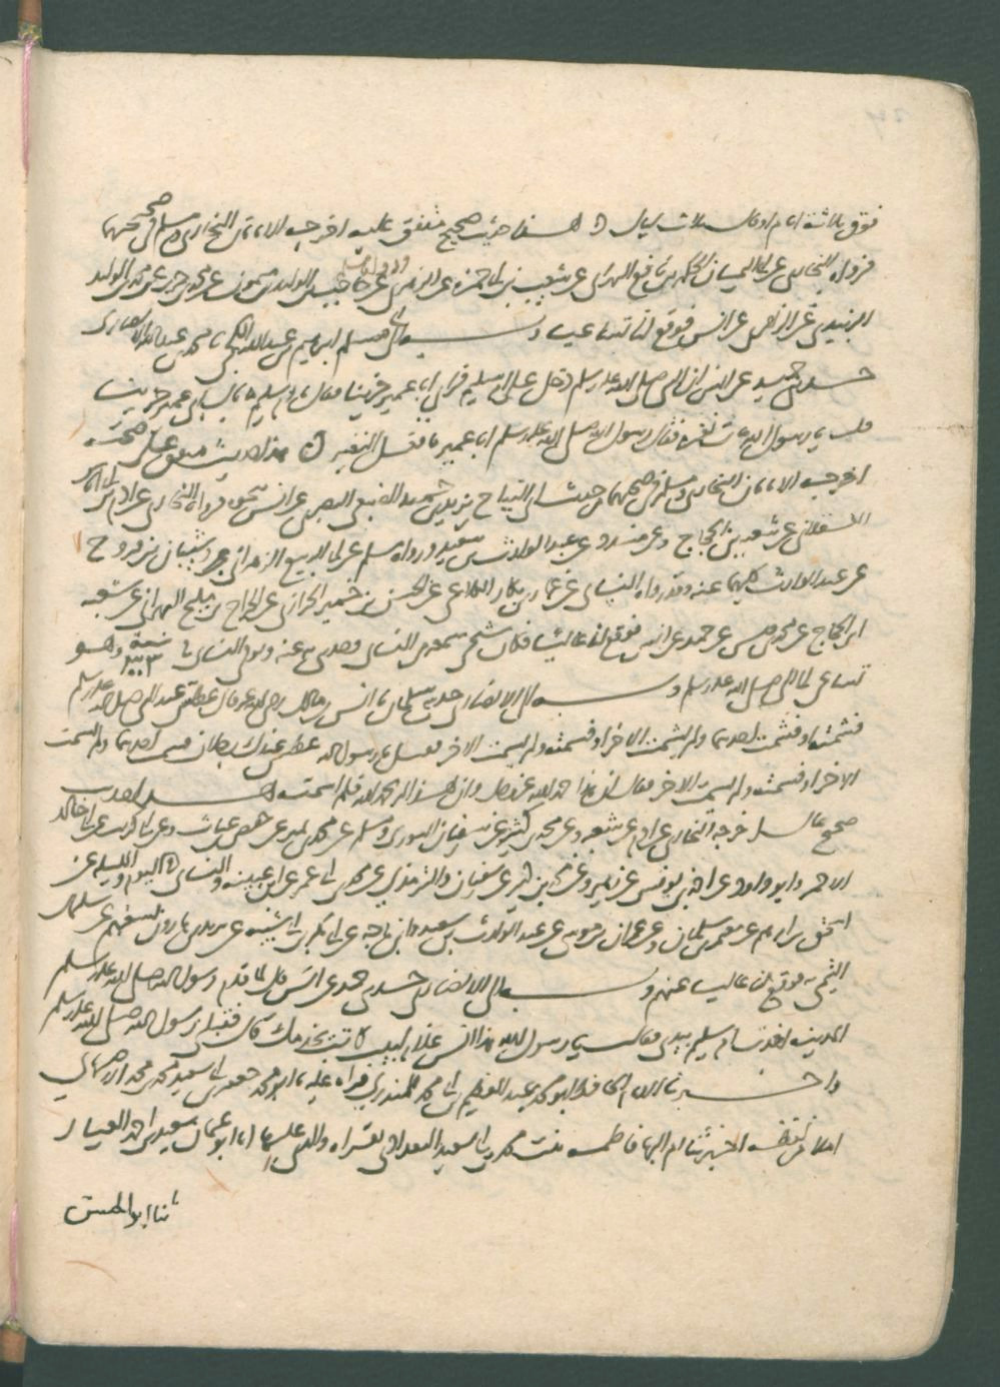 فوق ثلاثة ايام او قال ثلاث ليال هذا حديث صحيح متفق عليه اخرجه الامامان البخاري ومسلم في صحيحيهما
فرواه البخاري عن ابي اليمان الحكم بن نافع البهراني عن شعيب بن ابي حمزة عن الزهري عن حاجب بن الوليد عن محمد بن حرب عن محمد بن الوليد
الزبيدي عن الزهري عن انس فوقع لنا تساعيا وبه الى ابي مسلم ابراهيم بن عبد الله الكجي نا محمد بن عبد الله الانصاري
حدثني حميد عن انس ان النبي صلى الله عليه وسلم دخل على ام سليم فراى ابا عمير حزينا فقال يا ام سليم ما بال ابي عمير حزينا
قالت يا رسول الله مات نغيره فقال رسول الله صلى الله عليه وسلم ابا عمير ما فعل النغير هذا حديث متفق على صحته
اخرجه الامامان البخاري ومسلم في صحيحيهما من حديث ابي التياح يزيد بن حميد الضبعي البصري عن انس بنحوه فرواه البخاري عن ادم بن ابي اياس
العسقلاني عن شعبة بن الحجاج وعن مسدد عن عبد الوارث بن سعيد ورواه مسلم عن ابي الربيع الزهراني وشيبان بن فروخ
عن عبد الوارث كليهما عنه وقد رواه النسائي عن عمار بن بكار الكلاعي عن الحسن بن خمير الحرازي عن الجراح بن مليح البهراني عن شعبة
ابن الحجاج عن محمد بن قيس عن حميد عن انس فوقع لنا عاليا فكان شيخي سمعه من النسائي وصافحه به عنه وتوفي النسائي في سنة ٣٠٣ وهو
تساعي الى النبي صلى الله عليه وسلم وبه الى الانصاري حدثني سليمان نا انس بن مالك رضي الله عنه قال عطس عند النبي صلى الله عليه وسلم
فشمت او فسمت احدهما ولم يشمت الاخر او فسمته ولم يسمت الاخر فقيل يا رسول الله عطس عندك رجلان فسمت احدهما ولم تسمت
الاخر او فشمته ولم تشمت الاخر فقال ان هذا حمد الله عز وجل وان هذا لم يحمد الله فلم اسمته هذا حديث
صحيح عال اخرجه البخاري عن ادم عن شعبة وعن محمد بن كثير عن سفيان الثوري ومسلم عن محمد بن نمير عن حفص بن غياث وعن ابي كريب عن ابي خالد
الاحمر وابو داود عن احمد بن يونس عن زهير وعن محمد بن كثير عن سفيان والترمذي عن محمد بن ابي عمر عن ابن عيينة والنسائي في اليوم والليلة عن
اسحق بن ابراهيم عن معتمر بن سليمان وعن عمران بن موسى عن عبد الوارث بن سعيد وابن ماجه عن ابي بكر بن ابي شيبة عن يزيد بن هارون تسعتهم عن سليمان
التيمي به فوقع لنا عاليا عنهم وبه الى الانصاري حدثني حميد عن انس قال لما قدم رسول الله صلى الله عليه وسلم
المدينة اخذت ام سليم بيدي فقالت يا رسول الله هذا انس غلام لبيب كاتب يخدمك قال فقبلني رسول الله صلى الله عليه وسلم
واخبرنا الامام الحافظ ابو محمد عبد العظيم بن ابي محمد المنذري قراءة عليه نا ابو محمد جعفر بن ابي سعيد محمد بن محمد الاصبهاني
املا من لفظه اخبرتنا ام البهاء فاطمة بنت محمد بن ابي سعيد البغدادي بقراءة والدي عليها انا ابو عثمان سعيد بن احمد العيار
نا ابو الحسن